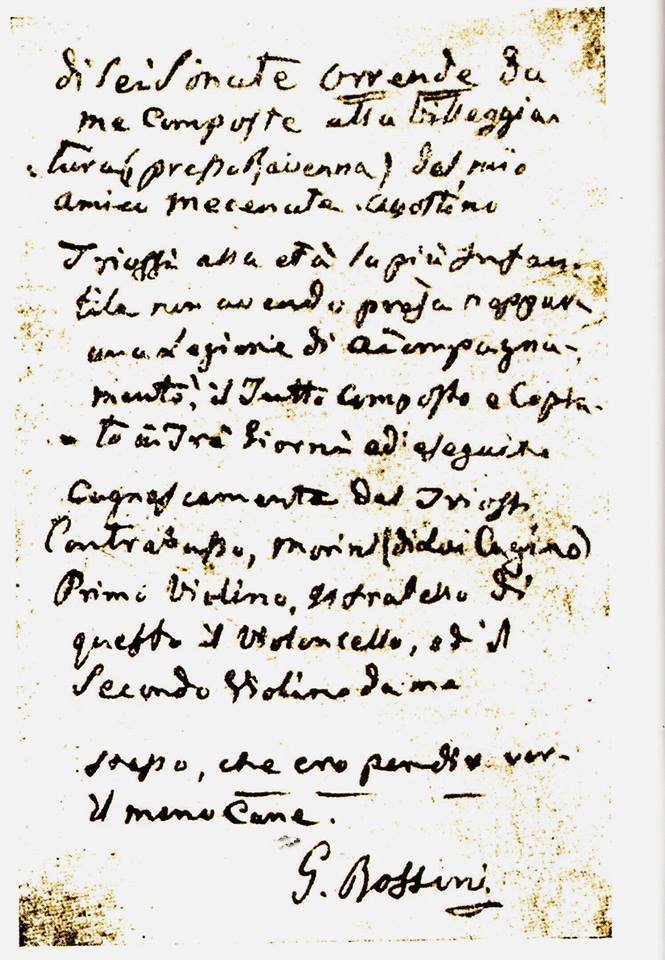 di sei Sonate orrende da
me composte alla Villeggia-
tura (presso Ravenna) del mio
amico mecenate Agostino
Triossi alla età la più Infan-
tile non avendo presa neppure
una Lezione di accompagna-
mento, il Tutto composto e Copia-
to in Tre Giorni ed eseguito
Cagnescamente dal Triossi
Contrabasso, Morini (di lui Cugino)
Primo Violino, il fratello di
questo il Violoncello, ed il
Secondo Violino da me
stesso, che ero per dir ver-
il meno Cane.
G. Rossini